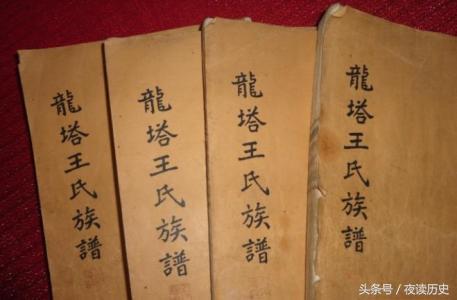 龍塔王氏族譜
龍塔王氏族譜
龍塔王氏族譜
龍塔王氏族譜
头条号／夜读历史